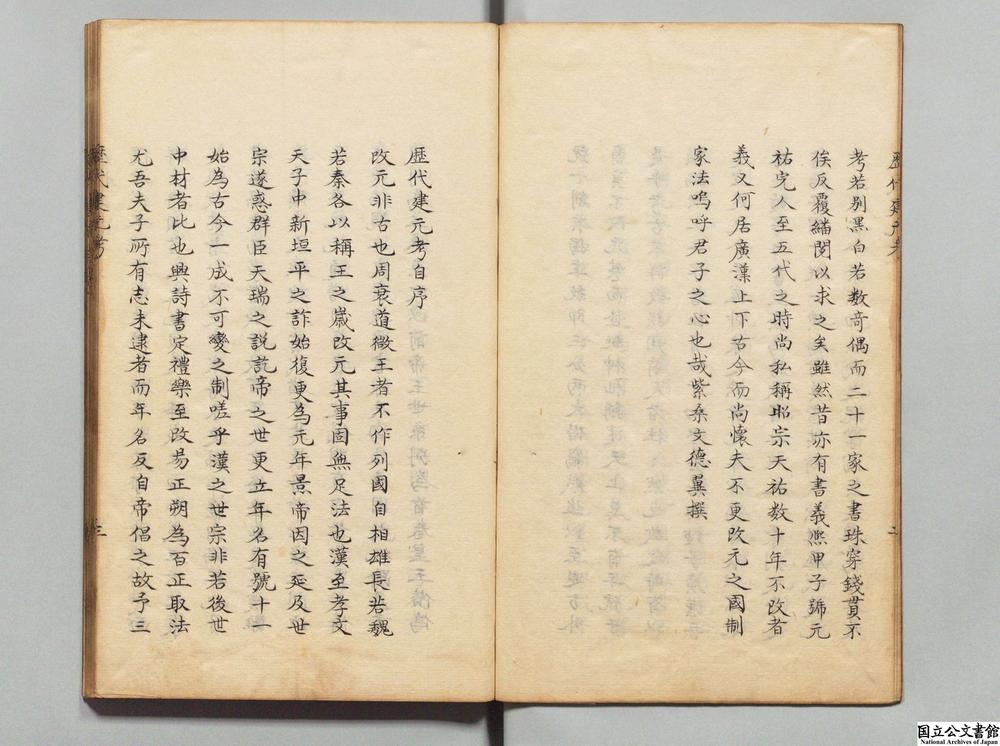 考若别黒白若数竒偶而二十一家之書珠穿錢貫不
俟反覆緟閲以求之矣雖然昔亦有書義熈甲子號元
祐完人至五代之時尚私稱昭宗天祐数十年不改者
義又何居廣漢上下古今而尚懷夫不更改元之國制
家法嗚呼君子之心也哉紫桑文德翼撰
歴代建元考自序
改元非古也周衰道微王者不作列國自相雄長若魏
若秦各以稱王之歳改元其事固無足法也漢至孝文
天子中新垣平之詐始復更為元年景帝因之延及世
宗遂惑群臣天瑞之説訖帝之世更立年名有號十一
始為古今一成不可變之制嗟乎漢之世宗非若後世
中材者比也興詩書定禮樂至改易正朔為百正取法
尤吾夫子所有志未逮者而年名反自帝倡之故予三
歴代建元考
三
二
国立公文書館
National Archives of Japan